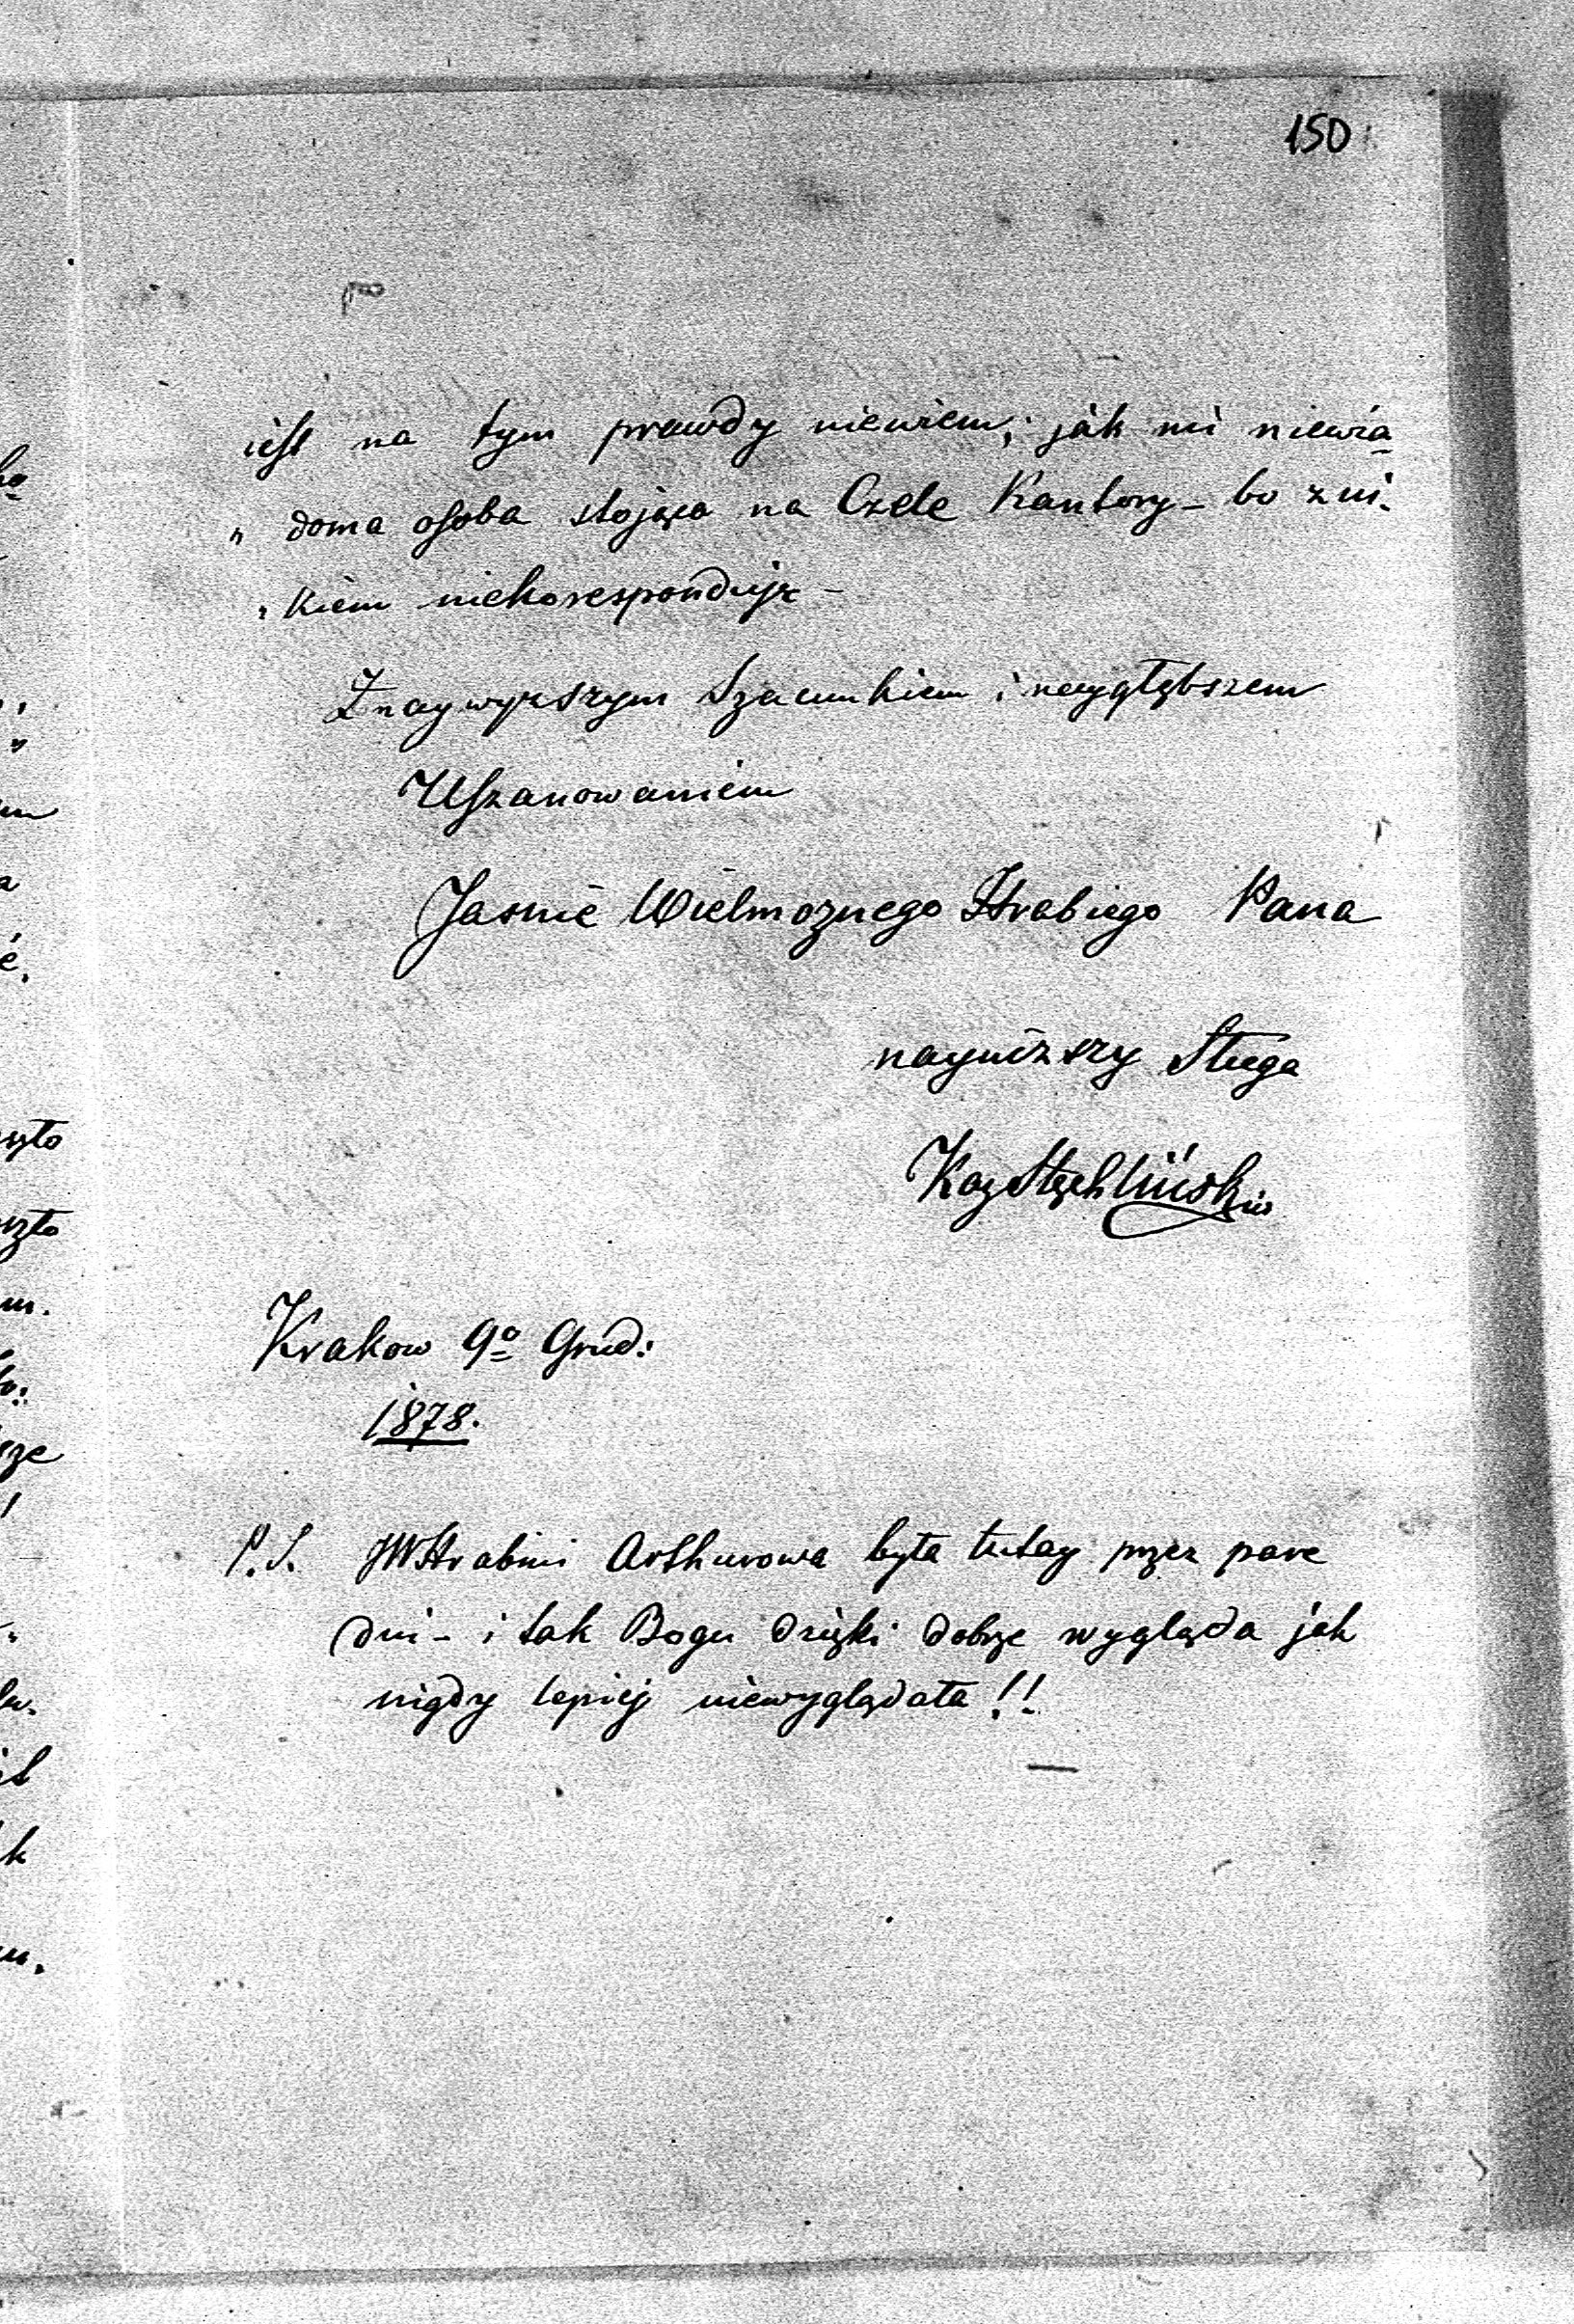 150
iest na tym prawdy niewiem, jak mi niewia
„ doma osoba stojąca na Czele Kantory – bo z ni.
„ kiem niekoresponduję –
Z naywyższym Szacunkiem i naygłębszem
Uszanowaniem
Jasnie Wielmożnego Hrabiego Pana
nayniższy Sługa
Kaz Stęchliński
Krakow 9º Grud:
1878.
P.S. JWHrabini Arthurowa była tutay przez pare
dni – i tak Bogu dzięki dobrze wygląda jak
nigdy lepiej niewyglądała!!